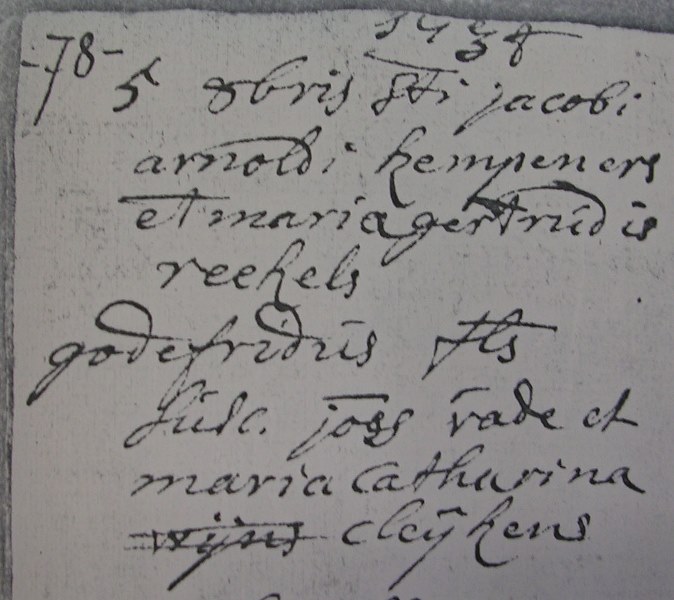 -78-
5 8bris Sti jacobi
arnoldi kempeners
et maria gertrudis
reekels
godefridus fls
Susc. joss rade et
maria Catharina
wijns cleÿkens